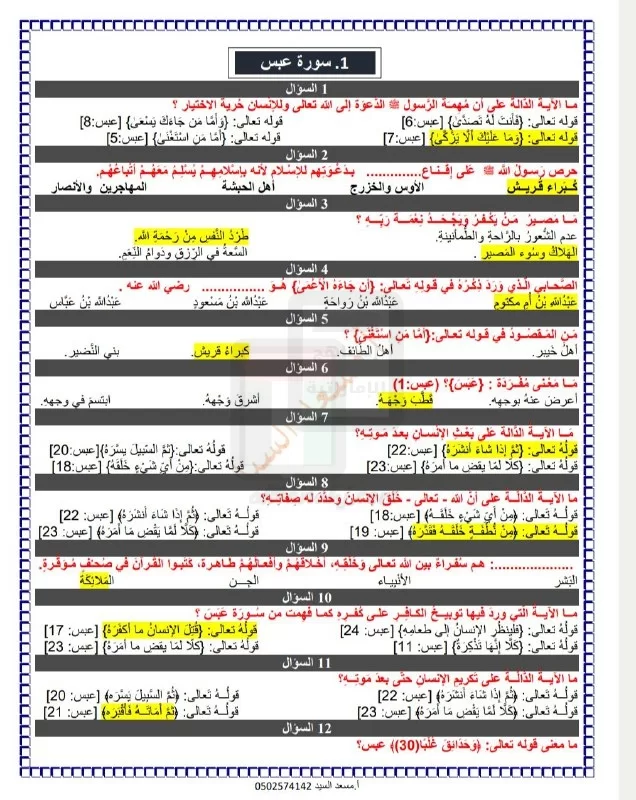 1. سورة عبس
السؤال 1
مـا الآيـة الدّالة على أن مُهمـة الرَّسول ﷺ الدَّعوَة إلى الله تعالى وللإنسان حُرية الاختيار ؟
قوله تعالى: {فَأَنتَ لَهُ تَصَدَّىٰ} [عبس:6]
قوله تعالى: {وَأَمَّا مَن جَاءَكَ يَسْعَىٰ} [عبس:8]
قوله تعالى: {وَمَا عَلَيْكَ أَلَّا يَزَّكَّىٰ} [عبس:7]
قوله تعالى: {أَمَّا مَنِ اسْتَغْنَىٰ} [عبس:5]
السؤال 2
حرص رسولُ الله ﷺ عَلى إقـنـاع.............. بـدَعْـوتِهم للإسـلام لأنه بإسْلامِهـمْ يُسْلِمُ مَعَهُـمْ أتْباعُهُم.
كُـبَراء قُريـش
الأوس والخزرج
أهل الحبشة
المهاجرين والأنصار
السؤال 3
مَـا مَصيـرُ مَـنْ يـكْـفـرُ ويَجْـحَـدُ نِعْمَــةَ رَبّـهِ ؟
عدم الشُّعورُ بالرَّاحةِ والطُّمأنينةِ.
طَرْدُ النَّفْسِ مِنْ رَحْمَةِ الله.
الهَلاكُ وسُوء المَصير .
السَّعةُ في الرِّزقِ ودَوامُ النِّعَمِ.
السؤال 4
الصَّحـابي الَّذي وَرَدَ ذِكـرُهُ في قـولِهِ تَعـالى: {أَن جَاءَهُ الْأَعْمَىٰ} هُـوَ ................ رضي الله عنه .
عَبْدُاللهِ بْنُ أُمِّ مكتومٍ
عَبْدُاللهِ بْنُ رَواحَةَ
عَبْدُاللهِ بْنُ مَسعودٍ
عَبْدُاللهِ بْنُ عَبَّاس
السؤال 5
مَـنِ المَـقـصُـودُ في قـوله تعـالى:{أَمَّا مَنِ اسْتَغْنَىٰ} ؟
أهلُ خيبر.
أهلُ الطائف.
كبراءُ قريش.
بني النَّضير.
السؤال 6
مَـا مَعْنى مُفْـرَدَة : {عَبَسَ}؟ (عبس:1)
أعرض عنهُ بوجههِ.
قَطَّبَ وَجْهَهُ.
أشرق وَجْههُ.
ابتسمَ في وجههِ.
السؤال 7
مَـا الآيـةِ الدَّالة عَلى بَعْثِ الإنْسَانِ بعدَ مَـوتِـهِ؟
قولُهُ تعالى: {ثُمَّ إِذَا شَاءَ أَنشَرَهُ} [عبس:22]
قولُهُ تعالى:{ثُمَّ السَّبِيلَ يَسَّرَهُ}[عبس:20]
قولُهُ تعالى: {كَلَّا لَمَّا يَقْضِ مَا أَمَرَهُ}[عبس:23]
قولُهُ تعالى:{مِنْ أَيِّ شَيْءٍ خَلَقَهُ} [عبس:18]
السؤال 8
ما الآيـة الدَّالــة على أنّ الله - تعالى - خَلَقَ الإنسانَ وحدَّدَ له صِفاتِـهِ؟
قـولُــهُ تَعالى: ﴿مِنْ أَيِّ شَيْءٍ خَلَقَــهُ﴾ [عبس:18]
قـولُــهُ تَعالى: ﴿ثُمَّ إِذَا شَاءَ أَنشَرَهُ﴾ [عبس: 22]
قـولُــهُ تَعالى: ﴿مِن نُّطْفَــةٍ خَلَقَــهُ فَقَدَّرَهُ﴾ [عبس: 19]
قـولُــهُ تَعالى: ﴿كَلَّا لَمَّا يَقْضِ مَا أَمَرَهُ﴾ [عبس: 23]
السؤال 9
....................: هـم سُفَـراءٌ بين الله تعالى وَخَلْقِهِ، أخْلاقُهُمْ وأفعالُهُمْ طاهـرة، كَتَبـوا القُرآنَ في صُحُفٍ مُـوَقّرةٍ.
البَشر
الأنْبِياء
الجِـن
المَلائِكَةُ
السؤال 10
مـا الآيـة الَّتي وردَ فيها تَوبيـخُ الكـافِـر علـى كُفـرهِ كمـا فَهِمتَ من سُـورَة عَبَسَ ؟
قولُهُ تعالى: {فَلْيَنظُرِ الْإِنسَانُ إِلَىٰ طَعَامِهِ} [عبس: 24]
قولُهُ تعالى: {قُتِلَ الْإِنسَانُ مَا أَكْفَرَهُ} [عبس: 17]
قولُهُ تعالى: {كَلَّا إِنَّهَا تَذْكِرَةٌ} [عبس: 11]
قولُهُ تعالى: {كَلَّا لَمَّا يَقْضِ مَا أَمَرَهُ} [عبس: 23]
السؤال 11
ما الآيـة الدَّالَّـة على تكْريمِ الإنسانِ حتَّى بعدَ مَوتِـهِ؟
قولُــهُ تَعالى: ﴿ثُمَّ إِذَا شَاءَ أَنشَرَهُ﴾ [عبس: 22]
قولُــهُ تَعالى: ﴿ثُمَّ السَّبِيلَ يَسَّرَه﴾ [عبس: 20]
قولُــهُ تَعالى: ﴿كَلَّا لَمَّا يَقْضِ مَا أَمَرَهُ﴾ [عبس: 23]
قولُــهُ تَعالى: ﴿ثُمَّ أَمَاتَــهُ فَأَقْبَرَه﴾ [عبس: 21]
السؤال 12
ما معنى قوله تعالى: ﴿وَحَدَائِقَ غُلْبًا(30)﴾ عبس؟
أ.مسعد السيد 0502574142